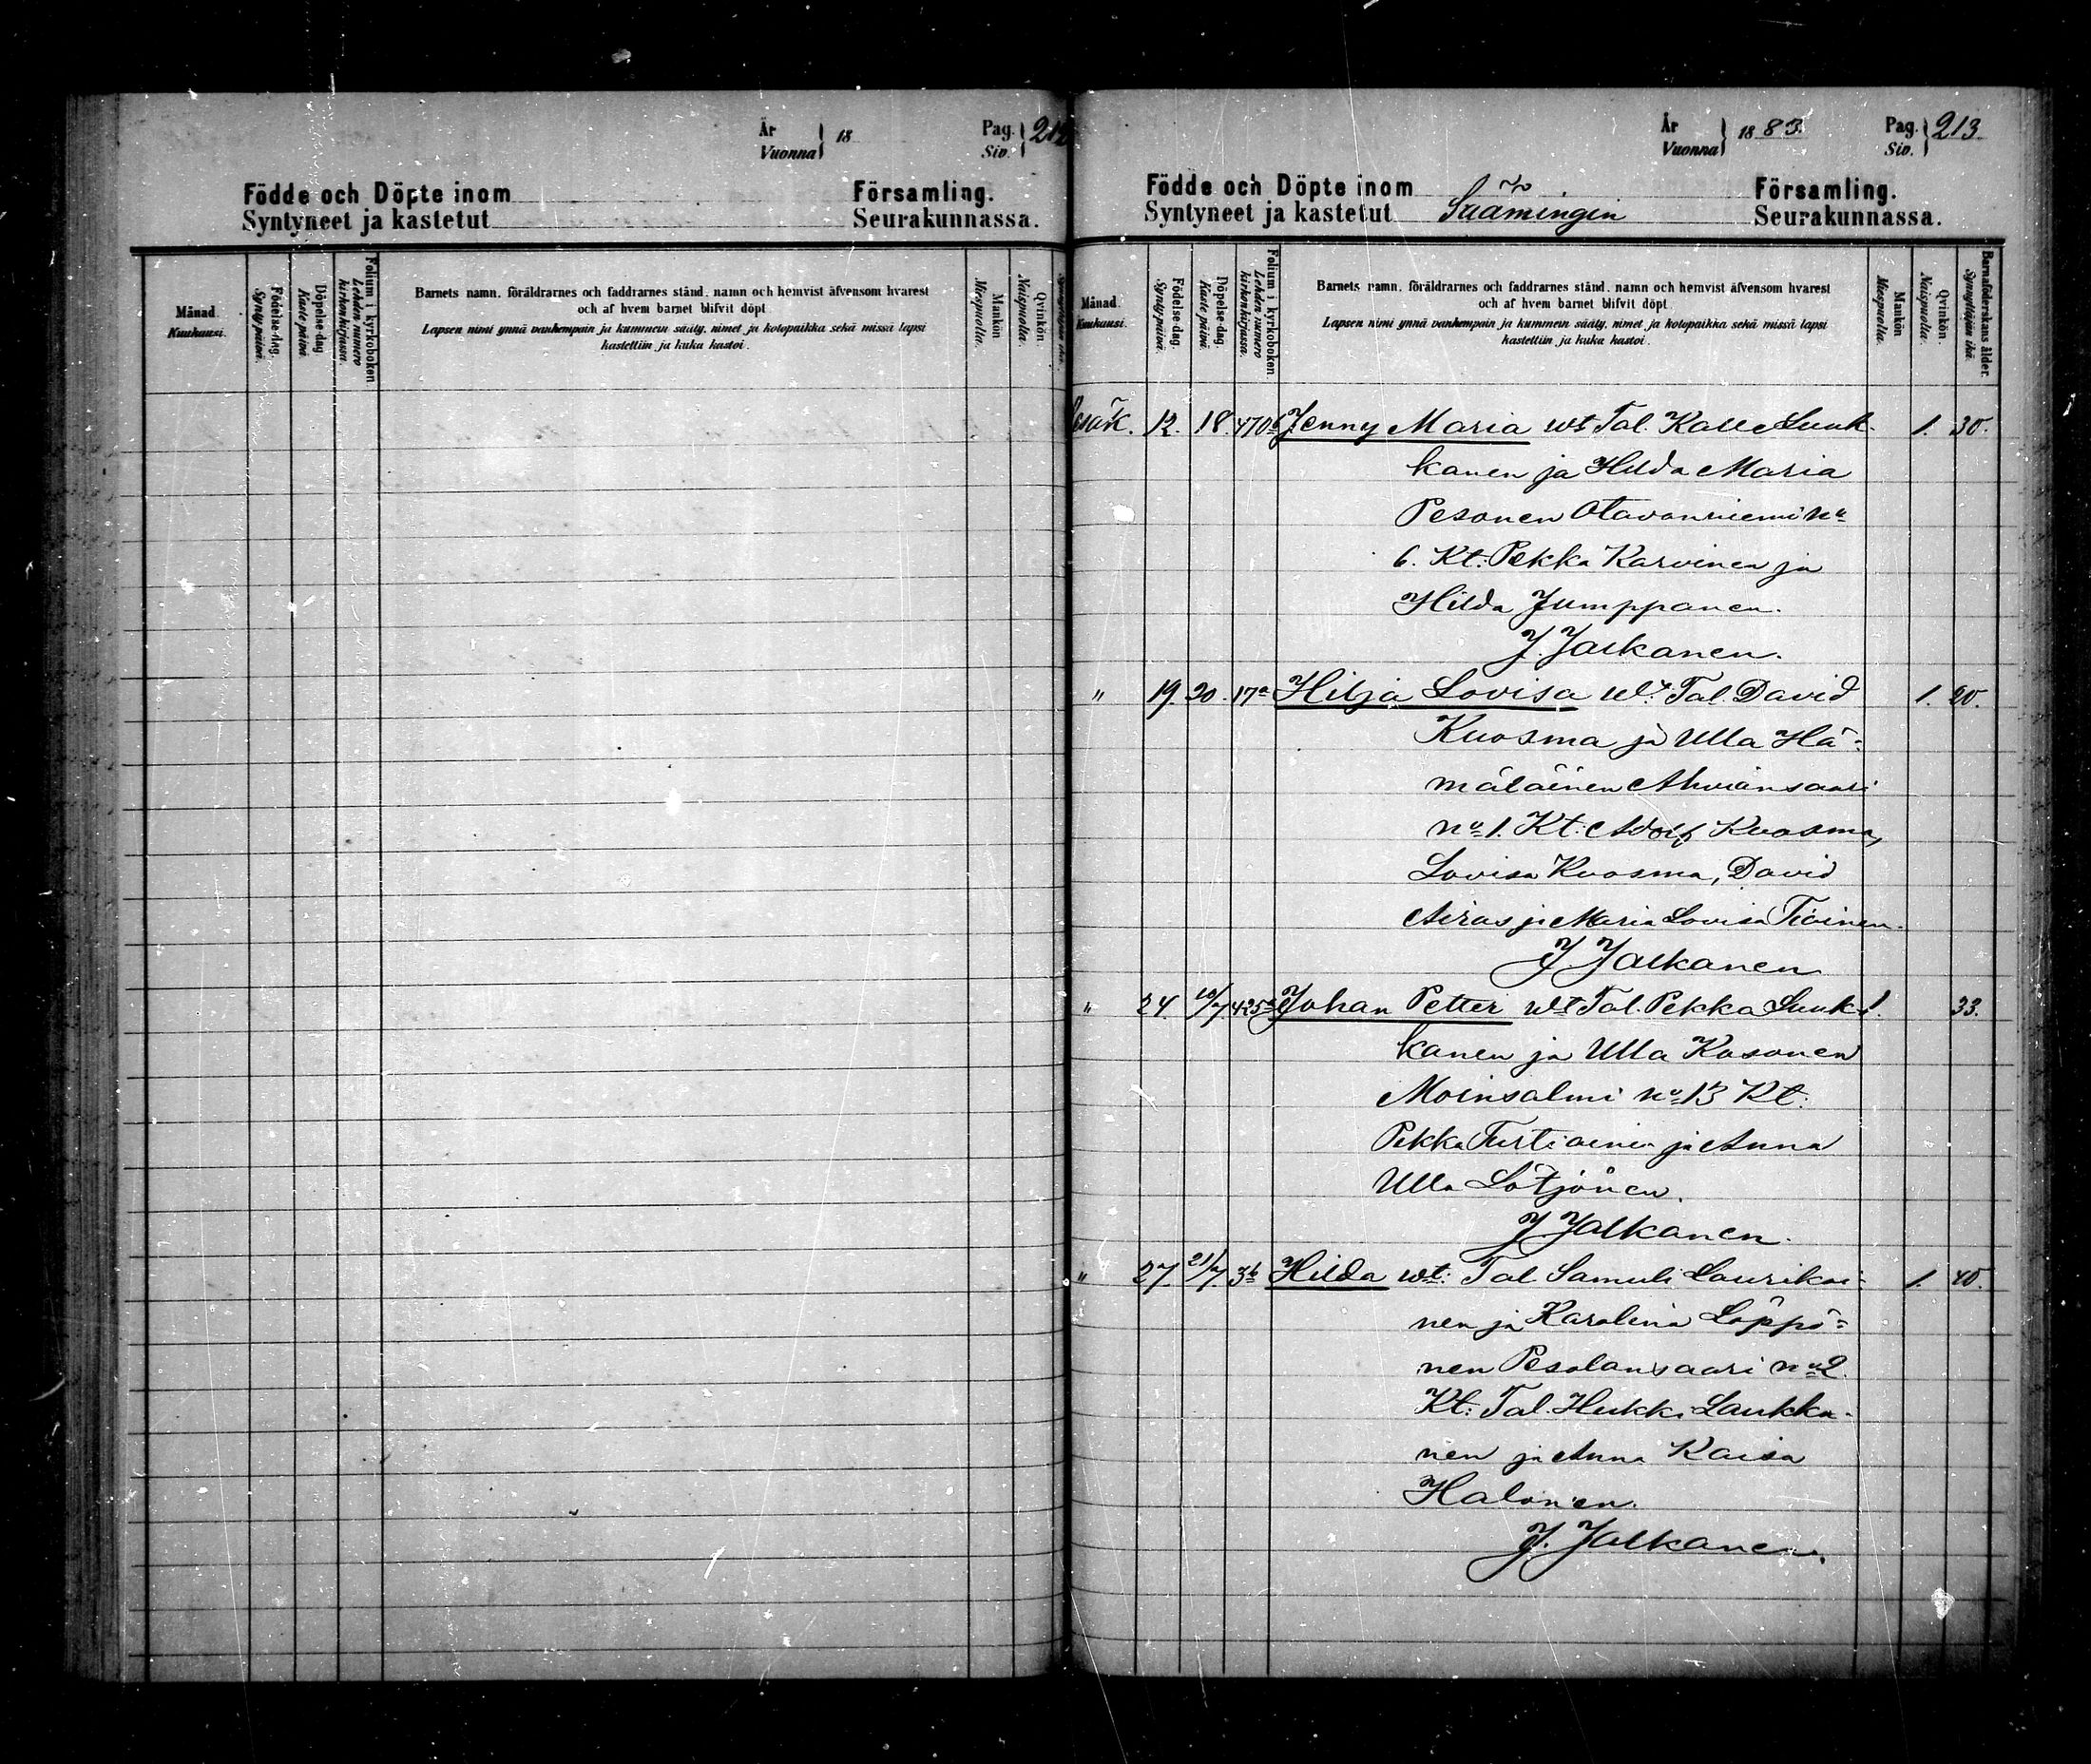 År
Vuonna } 18
Pag.
Siv. } 212
Födde och Döpte inom Församling.
Syntyneet ja kastetut Seurakunnassa.
Månad
Kuukausi.
Födelse-dag.
Synty päivä.
Döpelse-dag
Kaste päivä.
Folium i kyrkoboken
Lehden numero
kirkonkirjassa.
Barnets namn, föräldrarnes och faddrarnes stånd, namn och hemvist äfvensom hvarest
och af hvem barnet blifvit döpt
Lapsen nimi ynnä vanhempain ja kummein sääty, nimet ja kotopaikka sekä missä lapsi
kastettiin ja kuka kastoi.
Mankön
Miespuolia.
Qvinkön.
Naispuolia.
År
Vuonna } 1883.
Pag.
Siv. } 213
Födde och Döpte inom Församling.
Syntyneet ja kastetut Säämingin Seurakunnassa.
Månad
Kuukausi.
Födelse-dag.
Synty päivä.
Döpelse-dag.
Kaste päivä.
Folium i kyrkoboken
Lehden numero
kirkonkirjassa.
Barnets namn, föräldrarnes och faddrarnes stånd, namn och hemvist äfvensom hvarest
och af hvem barnet blifvit döpt.
Lapsen nimi ynnä vanhempain ja kummein sääty, nimet ja kotopaikka sekä missä lapsi
kastettiin ja kuka kastoi.
Mankön
Miespuolia.
Qvinkön.
Naispuolia.
Barnaföderskans ålder.
Synnyttäjän ikä.
Kesäk. 12. 18. 470b Jenny Maria wt Tal. Kalle Luuk- 1. 30.
kanen ja Hilda Maria
Pesonen Otavanniemi No
6. Kt: Pekka Karvinen ja
Hilda Jumppanen.
J. Jalkanen.
" 19. 20. 17a Hilja Lovisa wt. Tal. David 1. 20.
Kuosma ja Ulla Hä-
mäläinen Ahvionsaari
No 1. Kt: Adolf Kuosma,
Lovisa Kuosma, David
Airas ja Maria Lovisa Tiainen.
J Jalkanen
" 24. 10/7 425a Johan Petter wt Tal. Pekka Luuk- 1. 33.
kanen ja Ulla Kosonen
Moinsalmi No 13 Kt:
Pekka Turtiainen ja Anna
Ulla Lötjönen.
J Jalkanen.
" 27. 21/7. 3b Hilda wt: Tal Samuli Laurikai- 1. 40.
nen ja Karolina Löppö-
nen Pesolansaari No 2.
Kt: Tal. Heikki Laukka-
nen ja Anna Kaisa
Halonen.
J. Jalkanen.